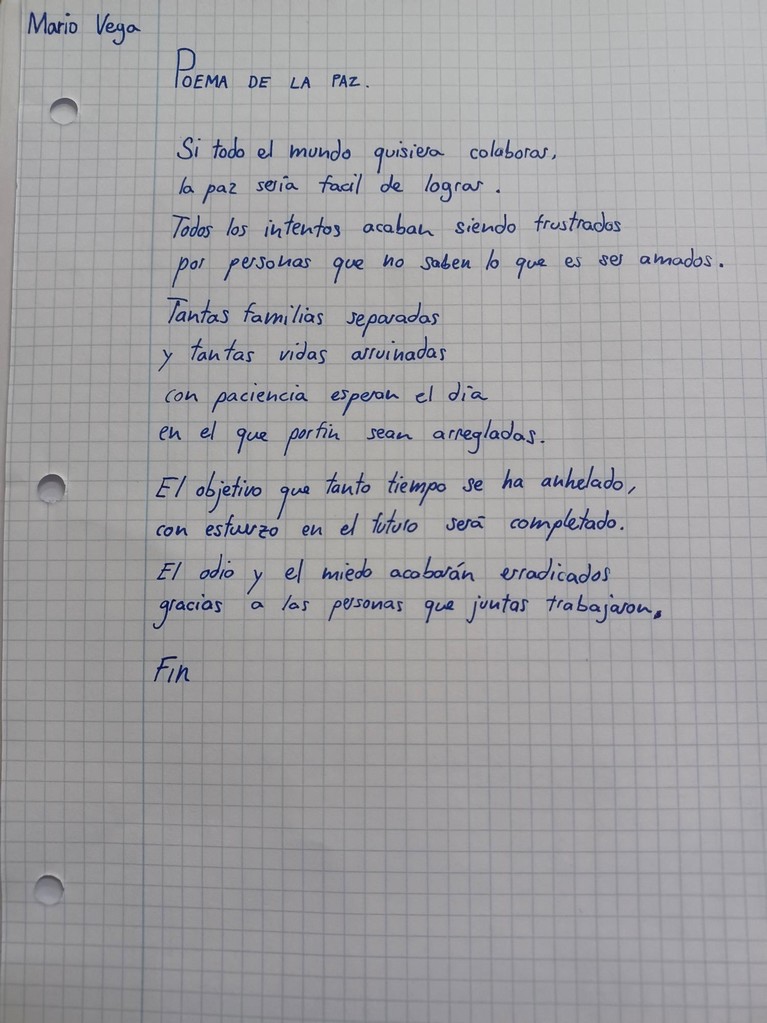 Mario Vega
POEMA DE LA PAZ.
Si todo el mundo quisiera colaborar,
la paz sería facil de lograr.
Todos los intentos acaban siendo frustrados
por personas que no saben lo que es ser amados.
Tantas familias separadas
y tantas vidas arruinadas
con paciencia esperan el día
en el que porfin sean arregladas.
El objetivo que tanto tiempo se ha anhelado,
con esfuerzo en el futuro será completado.
El odio y el miedo acabarán erradicados
gracias a las personas que juntas trabajaron.
Fin